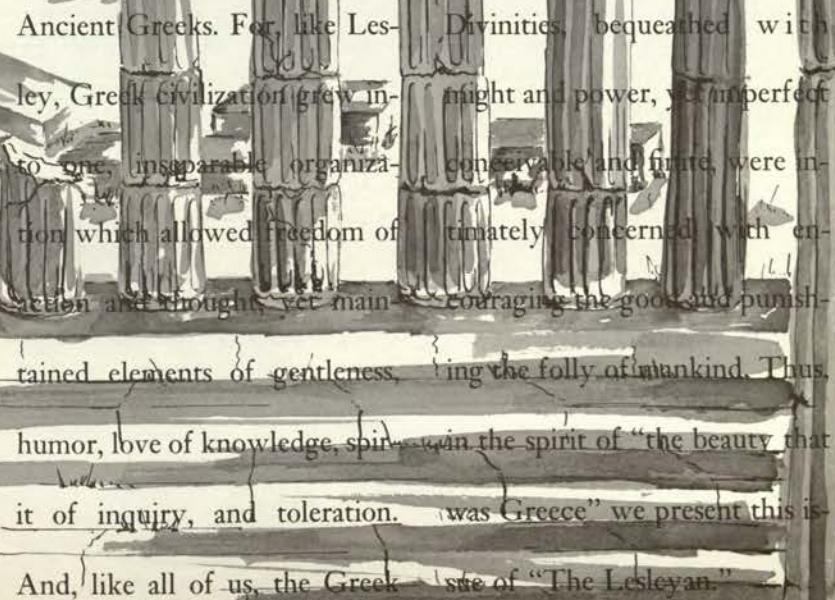 Ancient Greeks. For, like Les-
ley, Greek civilization grew in-
to one, inseparable organiza-
tion which allowed freedom of
action and thought, yet main-
tained elements of gentleness,
humor, love of knowledge, spir-
it of inquiry, and toleration.
And, like all of us, the Greek
Divinities, bequeathed with
might and power, yet imperfect
conceivable and finite, were in-
timately concerned with en-
couraging the good and punish-
ing the folly of mankind. Thus,
in the spirit of "the beauty that
was Greece" we present this is-
sue of "The Lesleyan."